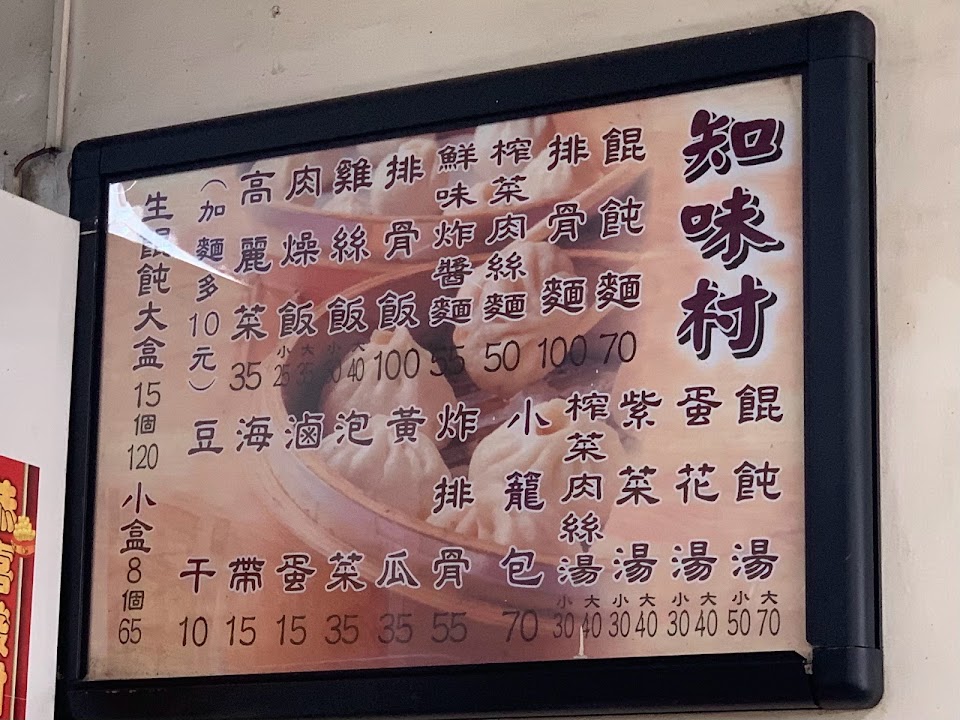 知味村
餛飩麵 70
排骨麵 100
榨菜肉絲麵 50
鮮味炸醬麵 55
排骨飯 100
雞絲飯 小 30 大 40
肉燥飯 小 25 大 35
高麗菜 35
（加麵多10元）
餛飩湯 小 50 大 70
蛋花湯 小 30 大 40
紫菜湯 小 30 大 40
榨菜肉絲湯 小 30 大 40
小籠包 70
炸排骨 55
黃瓜 35
泡菜 35
滷蛋 15
海帶 15
豆干 10
生餛飩大盒15個120 小盒8個65
恭喜